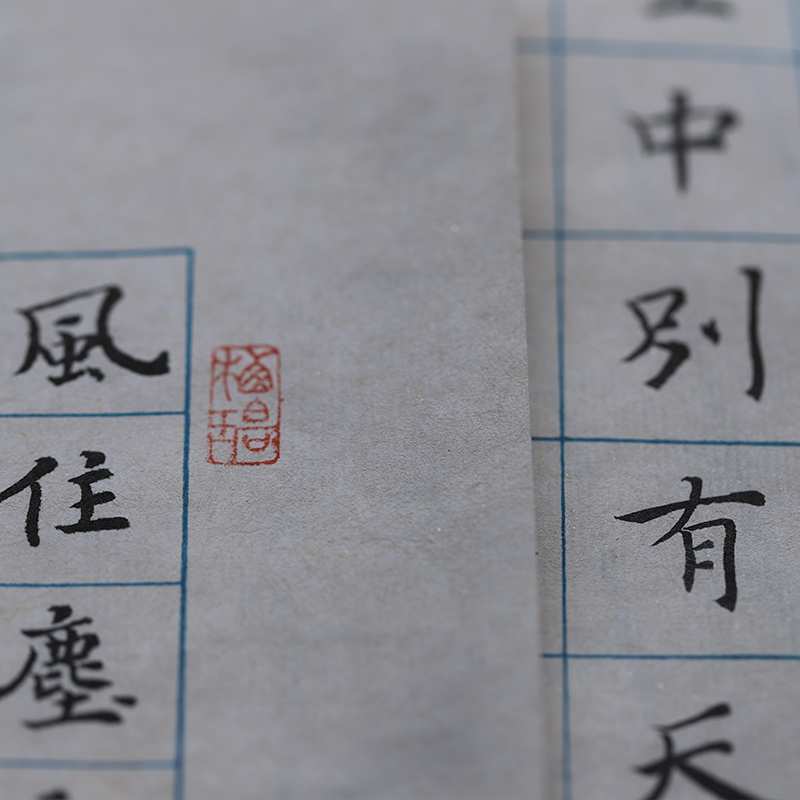 中別有天
風住塵